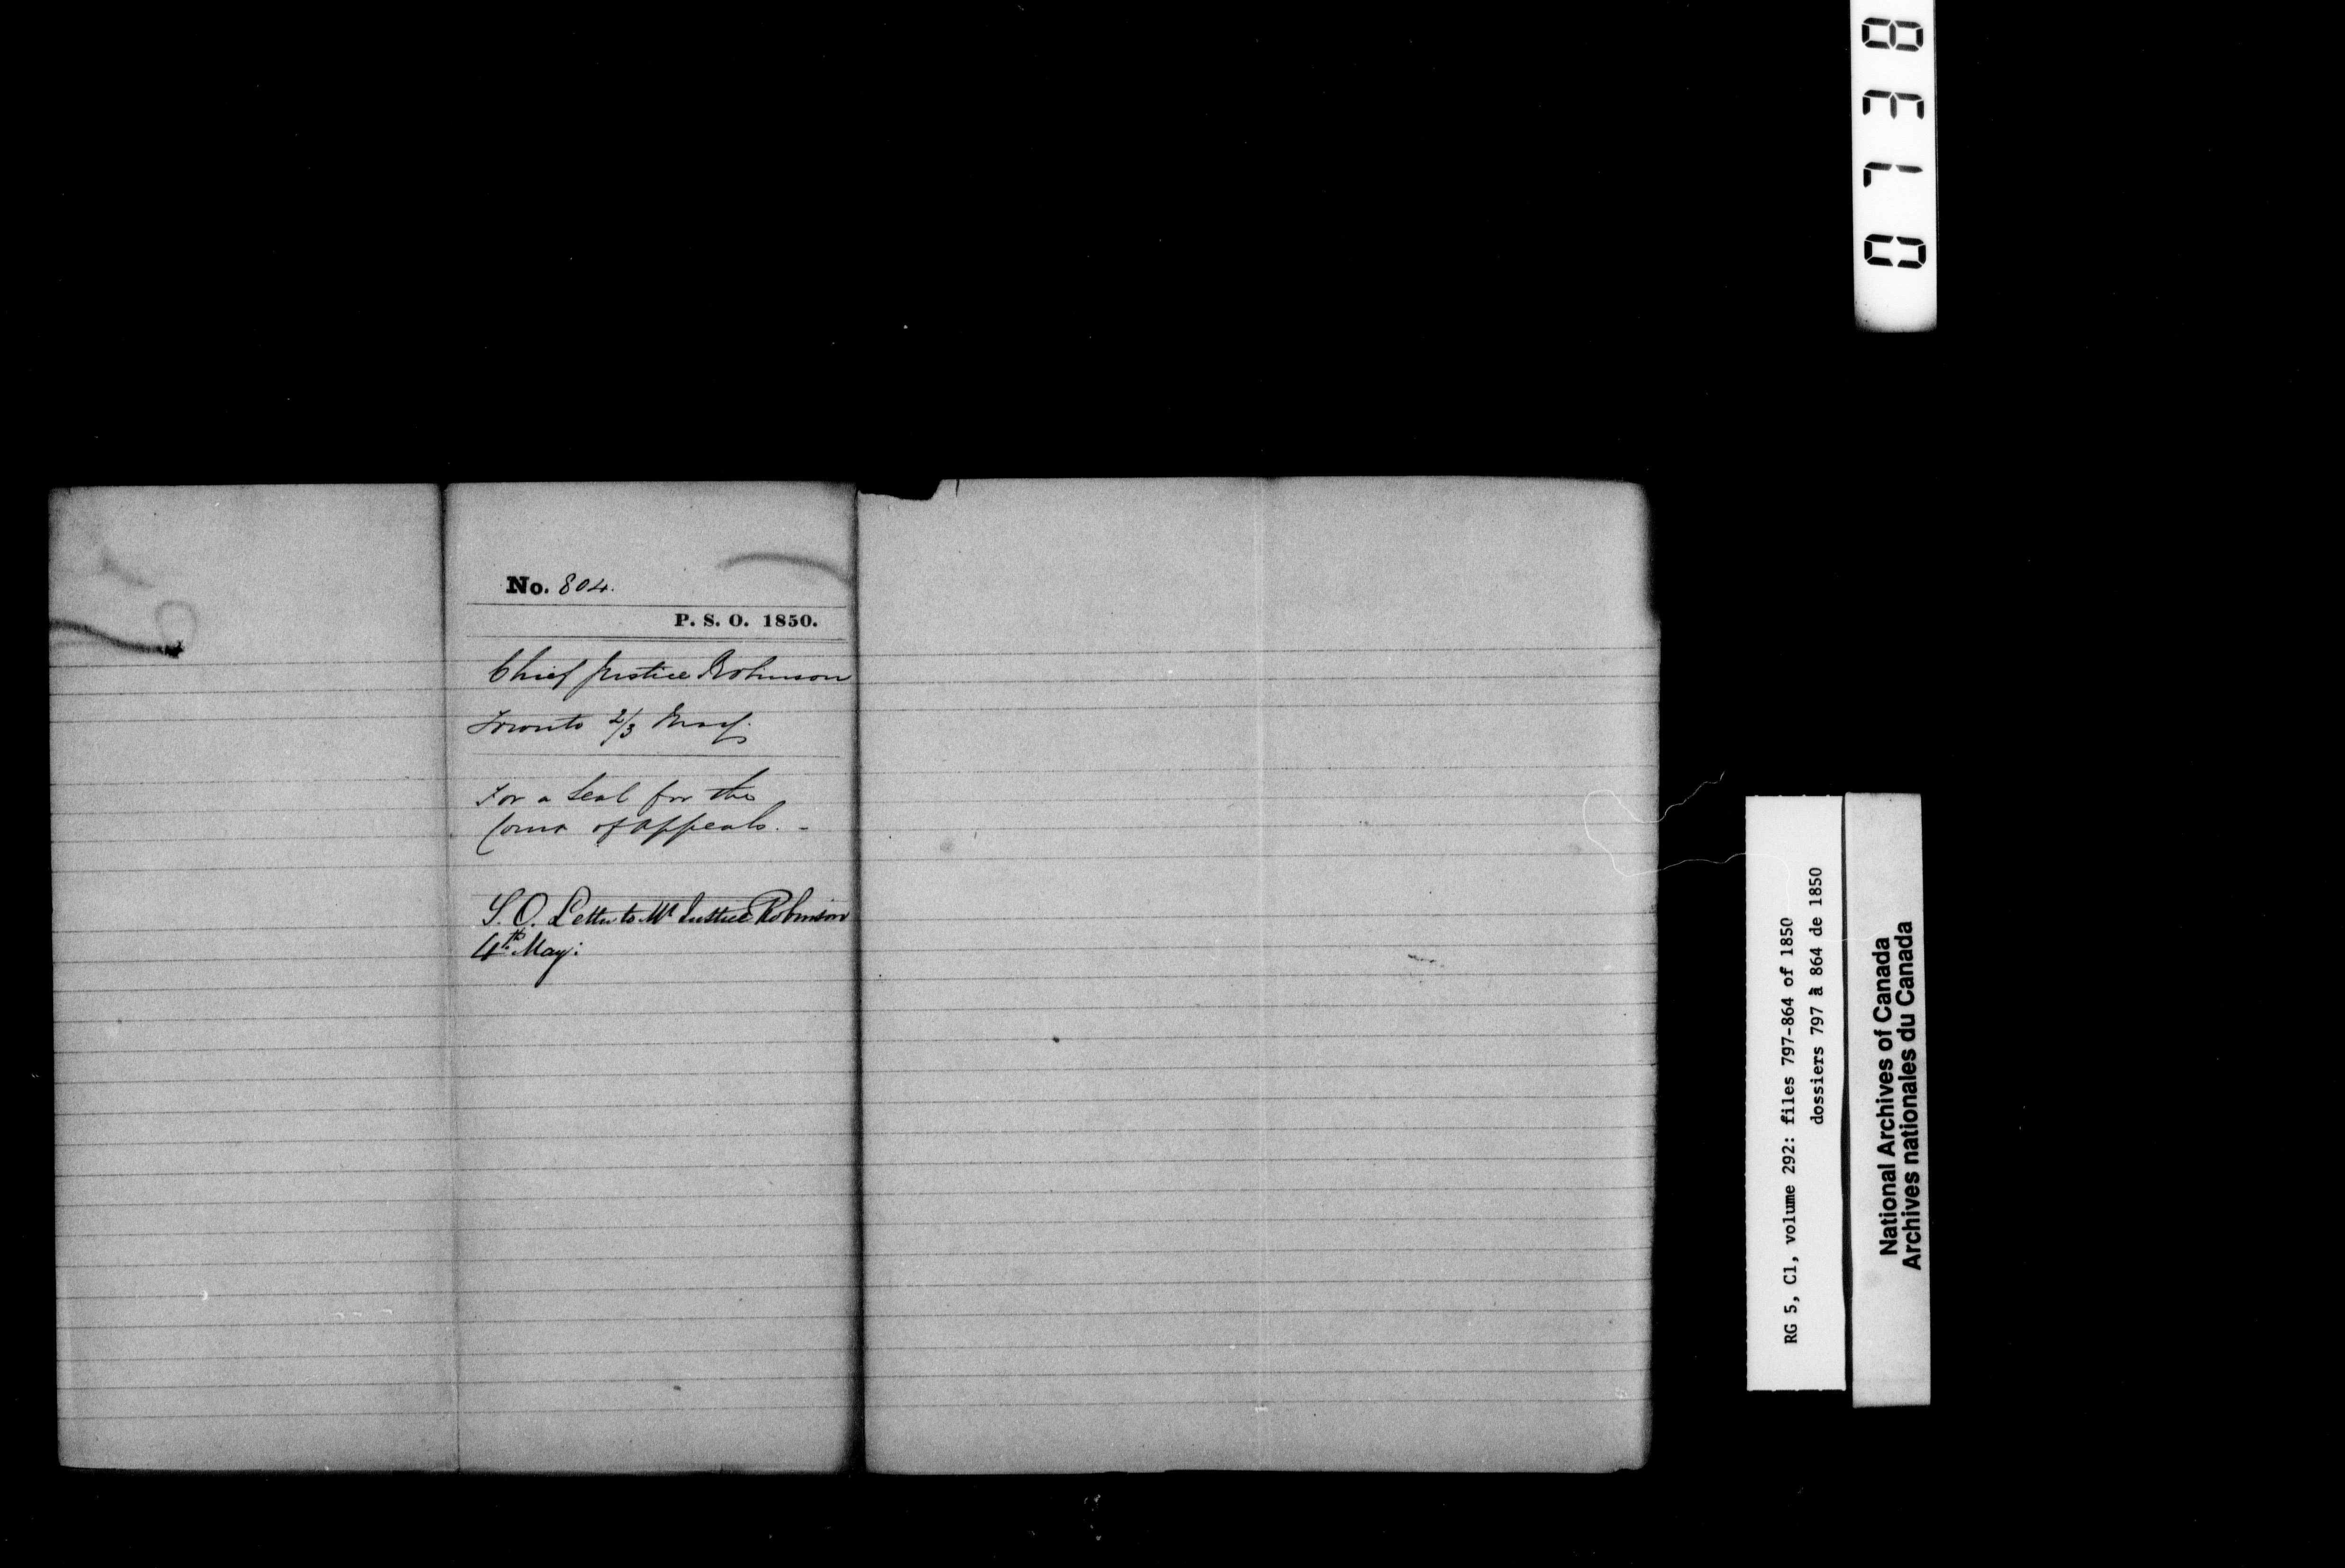 No. 804.
P. S. O. 1850.
Chief Justice Robinson
Toronto 2/3 May.
For a Seal for the
Court of Appeals. -
S. O. Letter to Mr Justice Robinson
4th May:
0738
RG 5, C1, volume 292: files 797-864 of 1850
dossiers 797 à 864 de 1850
National Archives of Canada
Archives nationales du Canada